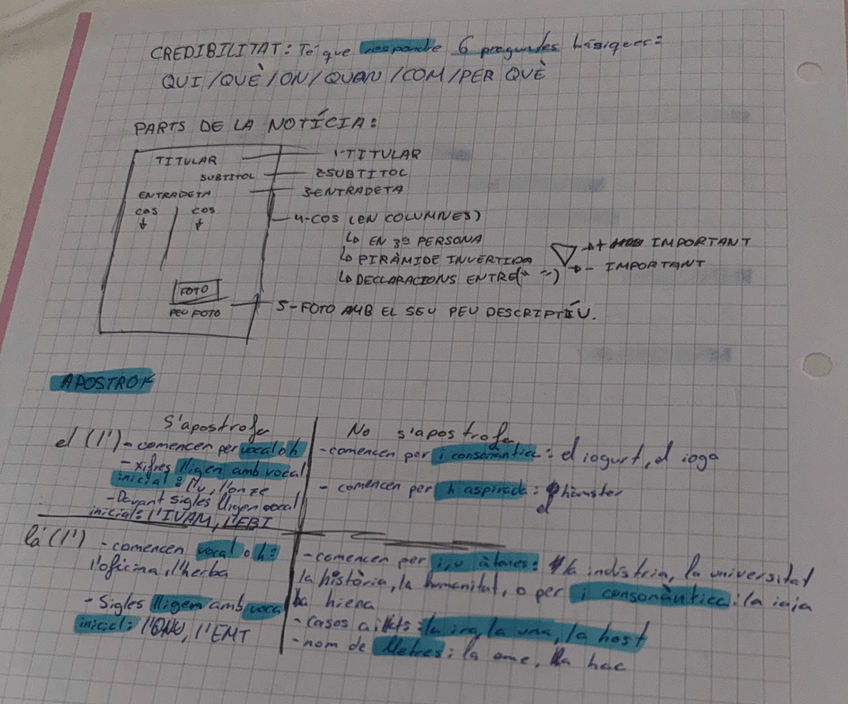 CREDIBILITAT: Té que respondre 6 preguntes bàsiques:
QUI/QUÈ/ON/QUAN/COM/PER QUÈ
PARTS DE LA NOTÍCIA:
TITULAR
SUBTITOL
ENTRADETA
COS COS
FOTO
PEU FOTO
1-TITULAR
2-SUBTITOL
3-ENTRADETA
4-COS (EN COLUMNES)
EN 3ª PERSONA
PIRÀMIDE INVERTIDA
DECLARACIONS ENTRE(" ")
+ IMPORTANT
- IMPORTANT
5-FOTO AMB EL SEU PEU DESCRIPTIU.
APOSTROF
S'apostrofa
el (l') - comencen per vocal o h
- xifres lligen amb vocal
inicial: l'u, l'onze
- Davant sigles lligen vocal
inicial: l'IVAM, l'EBI
No s'apostrofa
- comencen per i consonàntica: el iogurt, el ioga
- comencen per h aspirada: hàmster
el
la (l') - comencen vocal o h:
l'oficina, l'herba
- Sigles lligen amb vocal
inicial: l'ONU, l'EMT
- comencen per i, u àtones: la indústria, la universitat
la història, la humanitat, o per i consonàntica: la iaia
la hiena
- casos aïllats: la ira, la una, la host
- nom de lletres: la eme, la hac